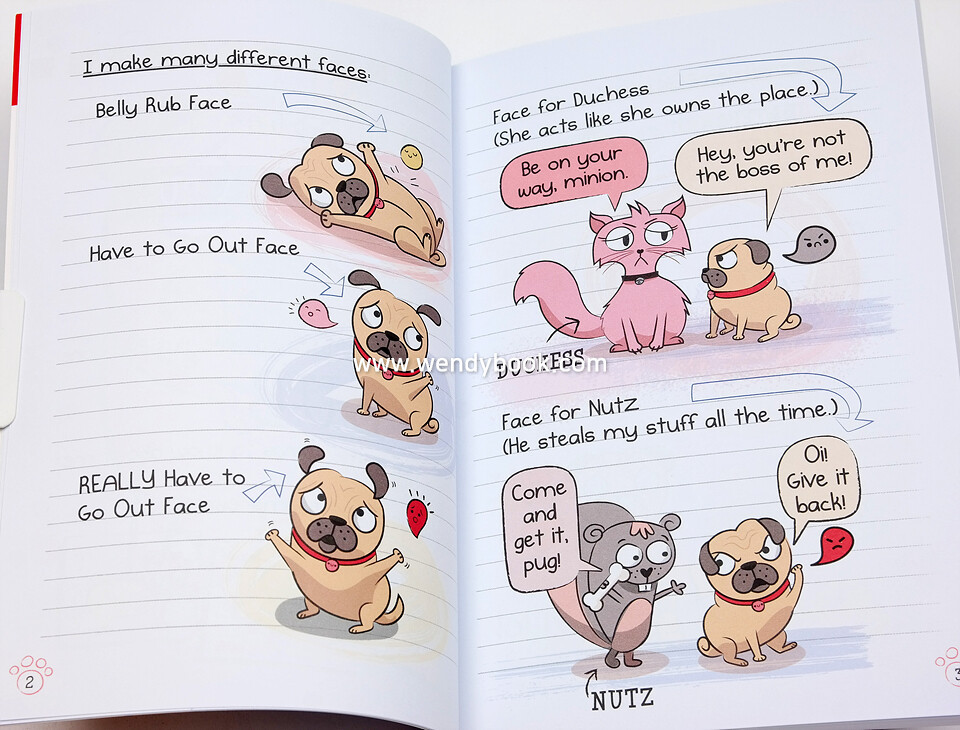 I make many different faces.
Belly Rub Face
Have to Go Out Face
REALLY Have to
Go Out Face
2
Face for Duchess
(She acts like she owns the place.)
Be on your
way, minion.
Hey, you're not
the boss of me!
DUCHESS
www.wendybook.com
Face for Nutz
(He steals my stuff all the time.)
Come
and
get it,
pug!
Oi!
Give it
back!
NUTZ
3